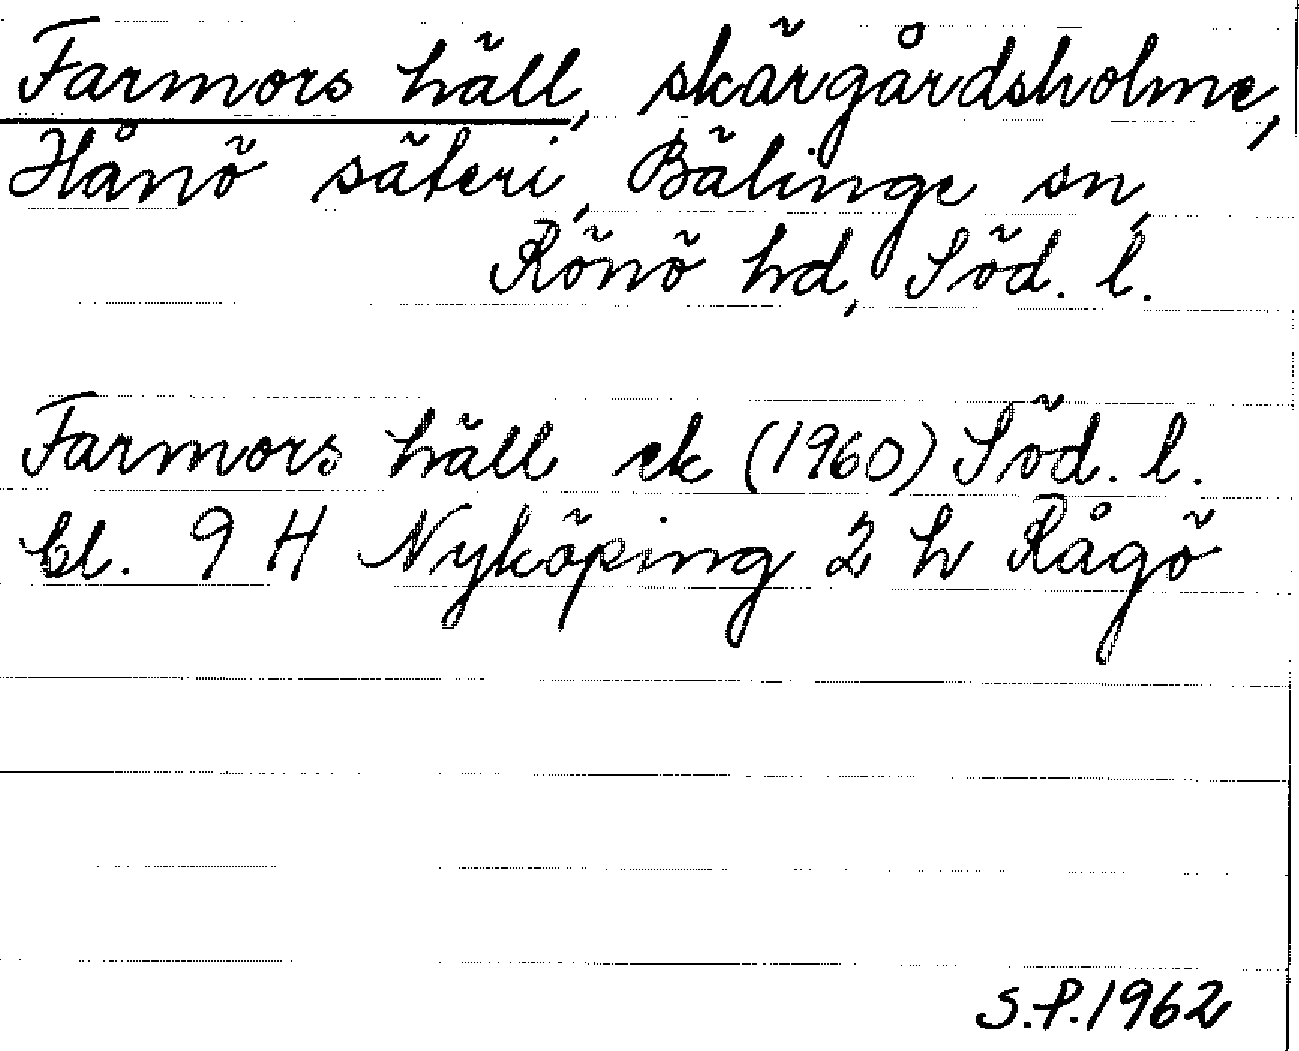 Farmors häll, skärgårdsholme,
Hånö säteri, Bälinge sn,
Rönö hd, Söd. l.
Farmors häll ek (1960) Söd. l.
bl. 9 H Nyköping 2 h Rågö
S.P. 1962